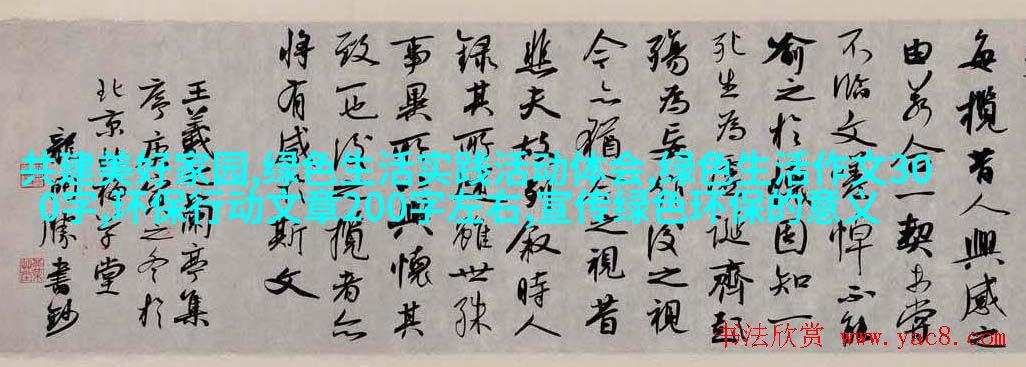 每攬昔人興感之
由若合一契未嘗
不臨文嗟悼不能
喻之於懷固知一
死生為虛誕齊彭
殤為妄作後之視
今亦猶今之視昔
悲夫故列叙時人
錄其所述雖世殊
事異所以興懷其
致一也後之攬者亦
將有感於斯文
王羲之蘭亭集
序之冬於
北京堂
龍開勝書鈔
共建美好家园,绿色生活实践活动体会,绿色生活作文30
0字,环保行动文章200字左右,宣传绿色环保的意义
书法欣赏 www.yac8.com